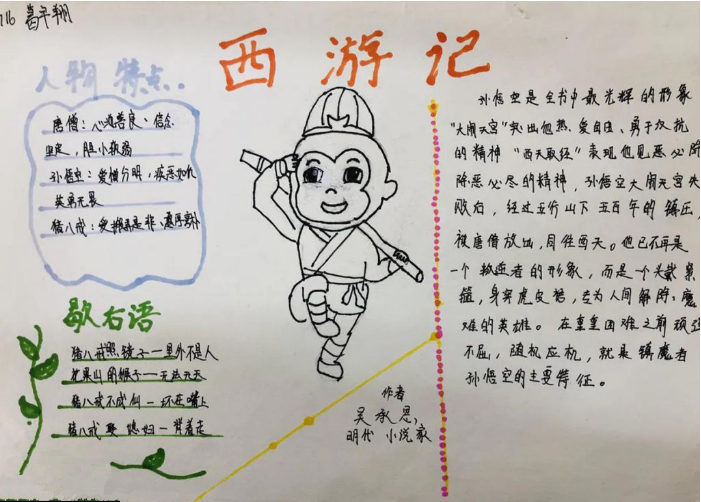 西游记
人物特点..
唐僧：心地善良、信念
坚定，胆小软弱
孙悟空：爱憎分明，疾恶如仇
英勇无畏
猪八戒：
歇右语
猪八戒照镜子一里外不是人
花果山的猴子一无法无天
猪八戒不成仙一坏在嘴上
猪八戒娶媳妇一背着走
作者
吴承恩，
明代小说家
孙悟空是全书中最光辉的形象
"大闹天宫"突出他热爱自由、勇于反抗
的精神"西天取经"表现他见恶必除
除恶必尽的精神，孙悟空大闹天宫失
败后，经过五行山下五百年的镇压，
被唐僧放出，同往西天。他已不再是
一个叛逆者的形象，而是一个头戴紧
箍，身穿虎皮裙，专为人间解除魔
难的英雄。在重重困难之前顽强
不屈，随机应机，就是镇魔者
孙悟空的主要特征。